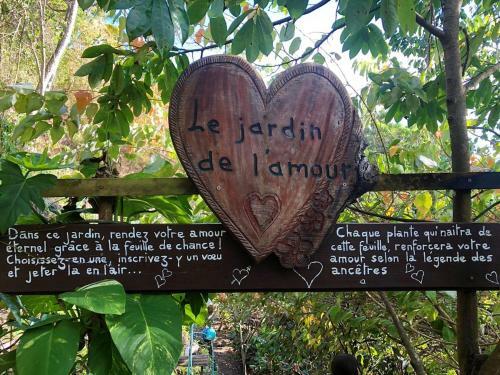 Le jardin
de l'amour
Dans ce jardin, rendez votre amour
éternel grâce à la feuille de chance!
Choisissez-en une, inscrivez-y un vœu
et jeter la en l'air...
Chaque plante qui naîtra de
cette feuille, renforcera votre
amour selon la légende des
ancêtres